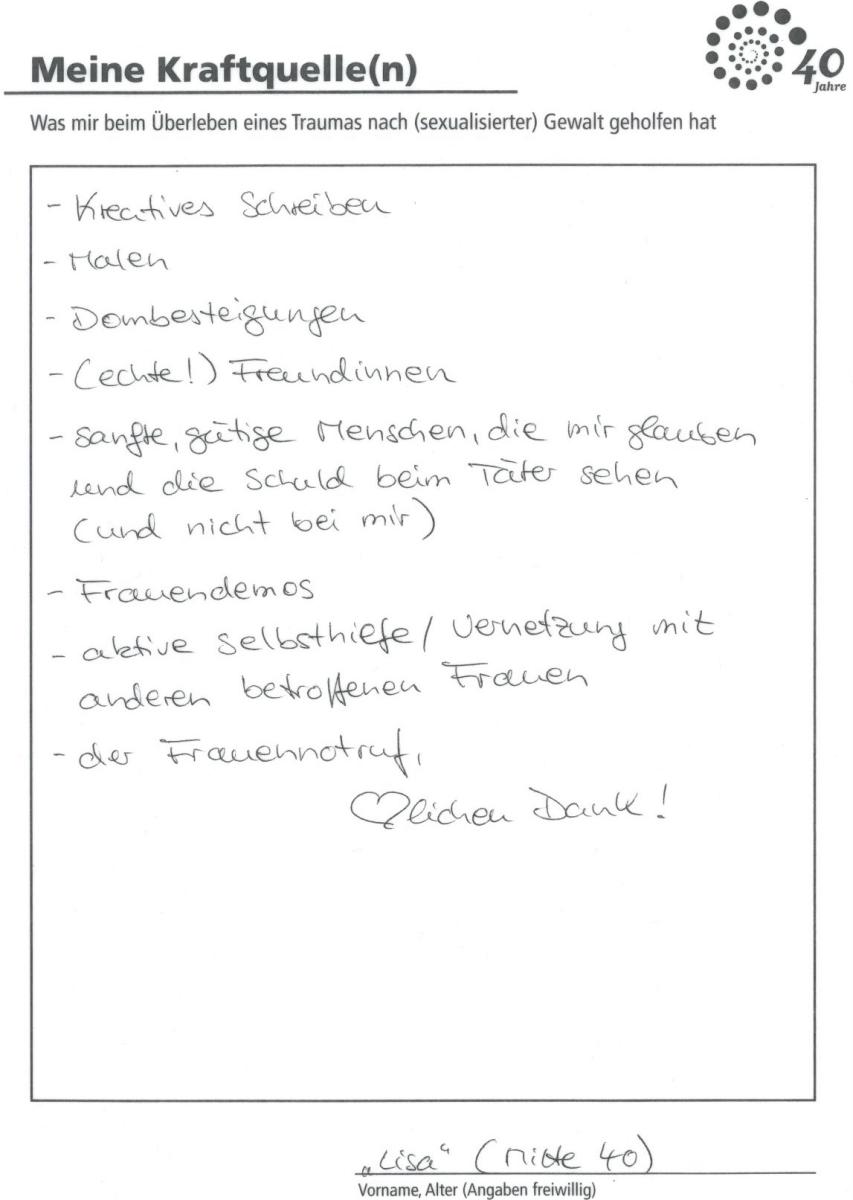 Meine Kraftquelle(n)
40
Jahre
Was mir beim Überleben eines Traumas nach (sexualisierter) Gewalt geholfen hat
- Kreatives Schreiben
- Malen
- Dombesteigungen
- (echte!) Freundinnen
- sanfte, gütige Menschen, die mir glauben
und die Schuld beim Täter sehen
(und nicht bei mir)
- Frauendemos
- aktive Selbsthilfe / Vernetzung mit
anderen betroffenen Frauen
- der Frauennotruf,
♡lichen Dank!
„Lisa“ (Mitte 40)
Vorname, Alter (Angaben freiwillig)